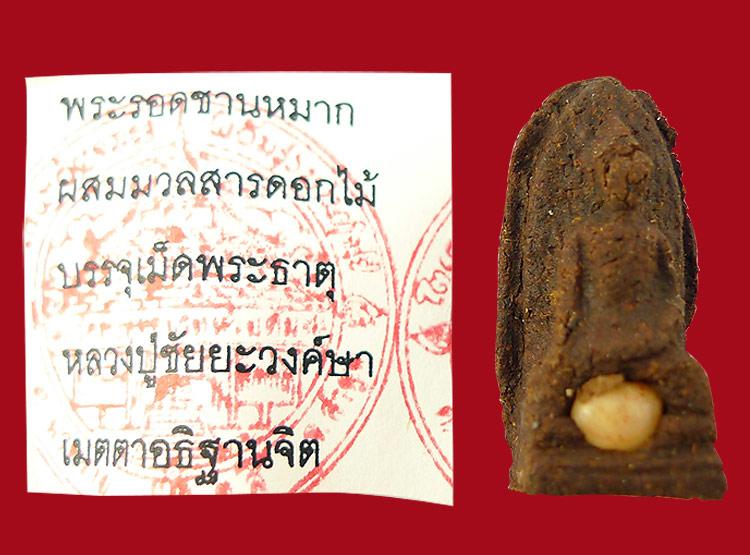 พระรอดชานหมาก
ผสมมวลสารดอกไม้
บรรจุเม็ดพระธาตุ
หลวงปู่ชัยยะวงค์ษา
เมตตาอธิฐานจิต